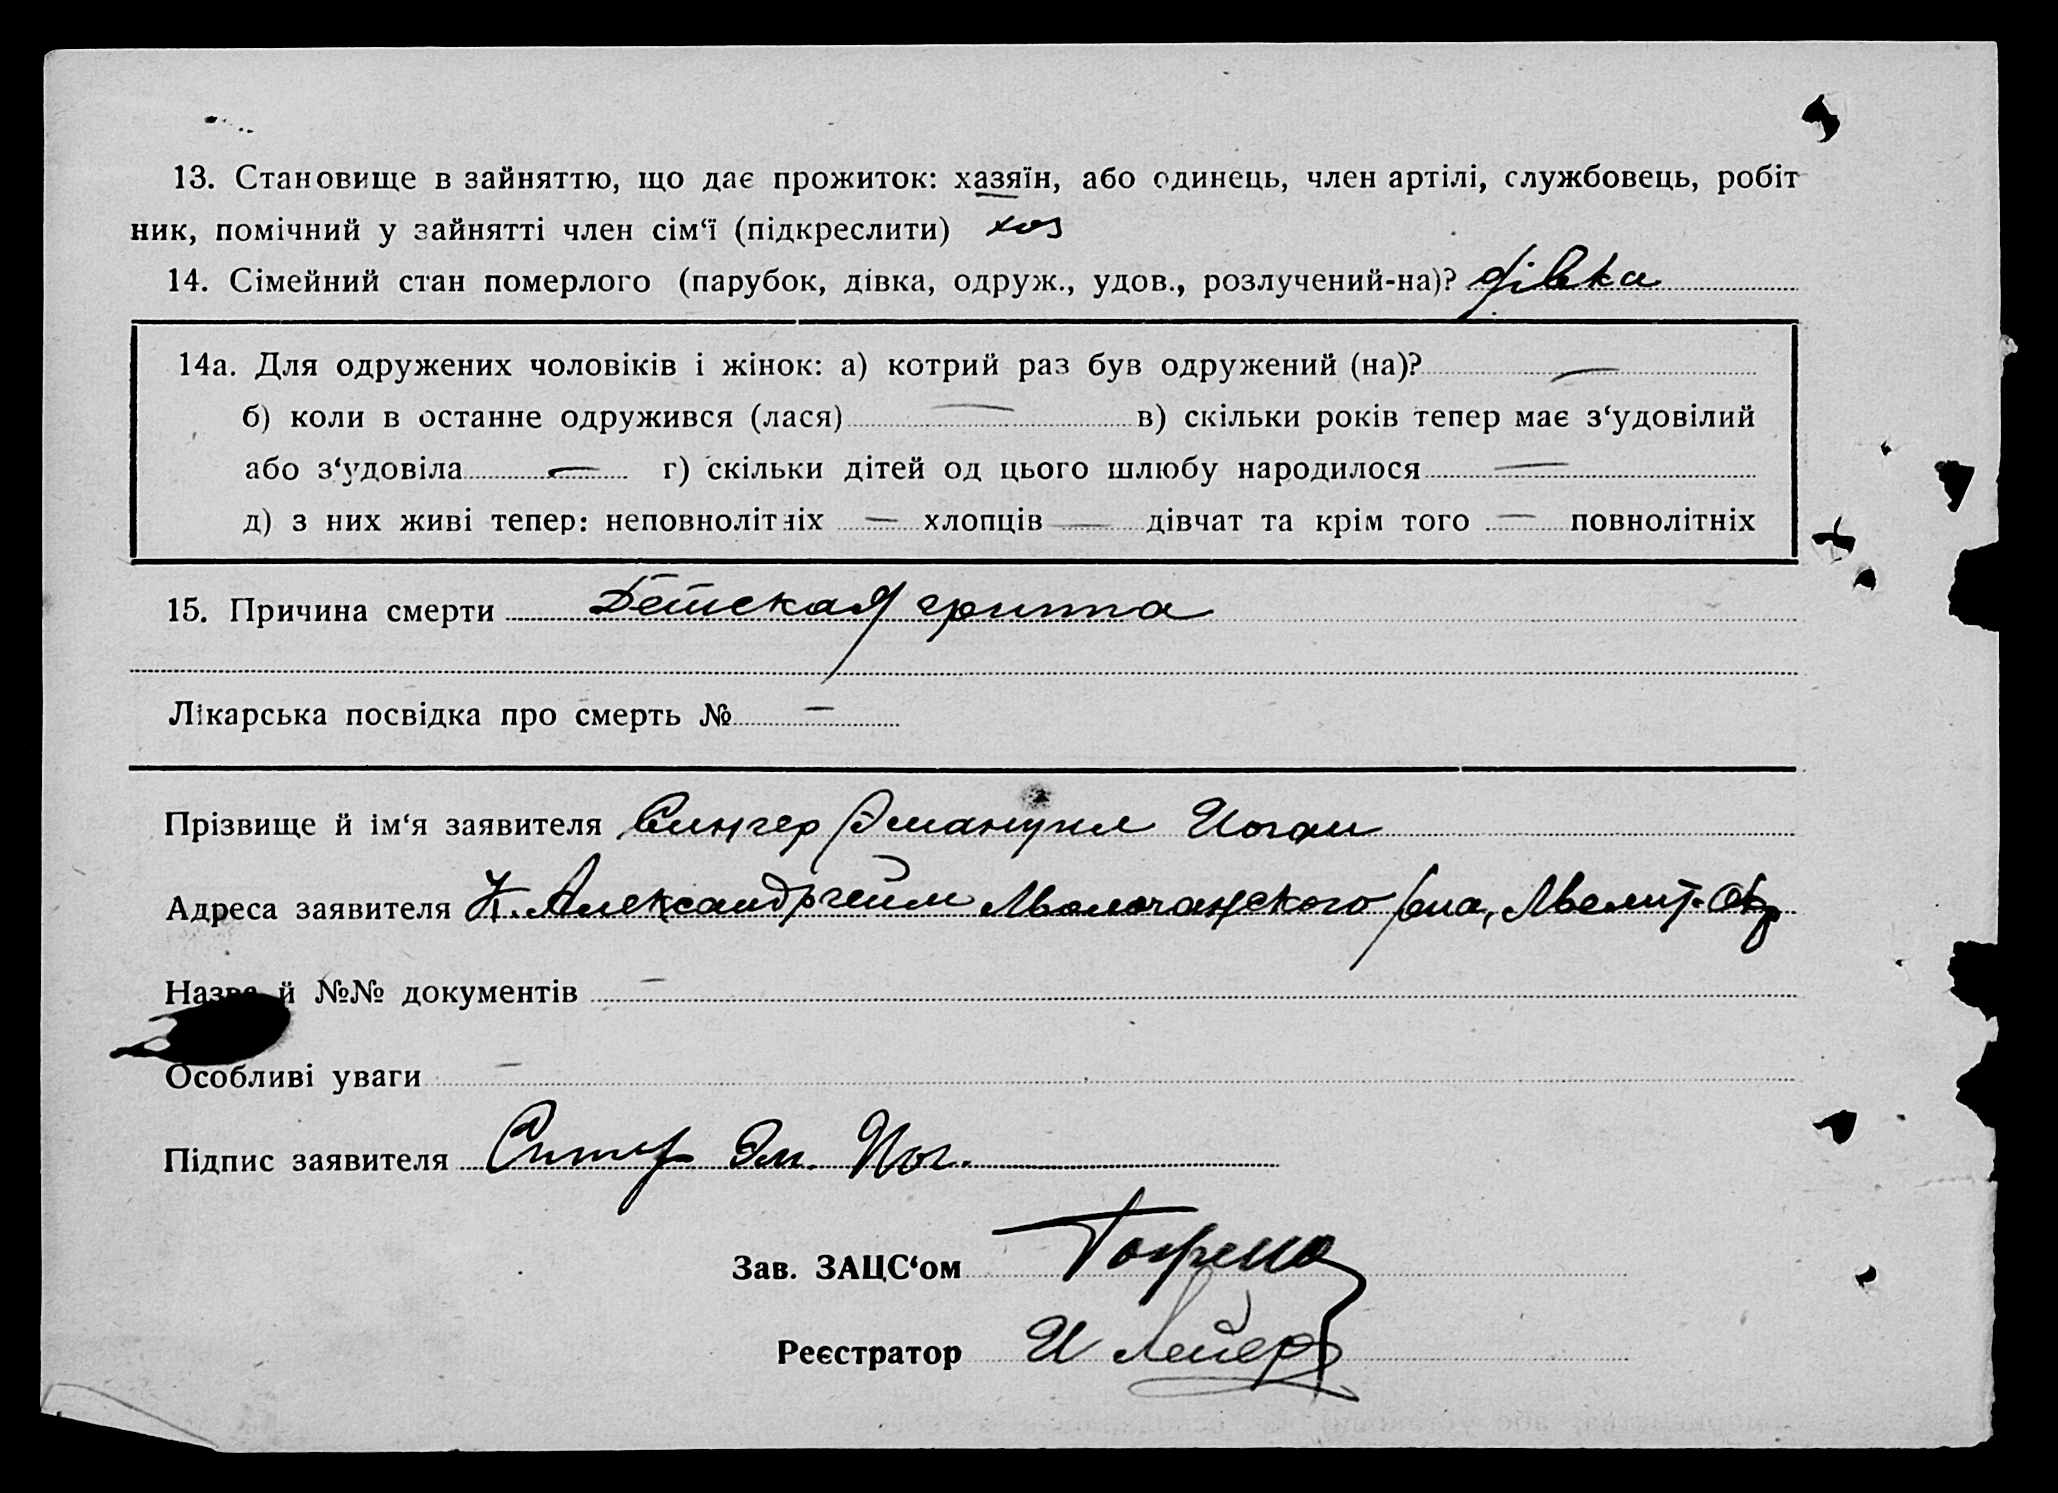 13. Становище в зайняттю, що дає прожиток: хазяїн, або одинець, член артілі, службовець, робіт
ник, помічний у зайнятті член сім‘ї (підкреслити) хоз
14. Сімейний стан померлого (парубок, дівка, одруж., удов., розлучений-на)? дівка
14а. Для одружених чоловіків і жінок: а) котрий раз був одружений (на)? —
б) коли в останне одружився (лася) — в) скільки років тепер має з‘удовілий
або з‘удовіла — г) скільки дітей од цього шлюбу народилося —
д) з них живі тепер: неповнолітніх — хлопців — дівчат та крім того — повнолітніх
15. Причина смерти Детская гриппа
Лікарська посвідка про смерть № —
Прізвище й ім‘я заявителя Сингер Эмануил Иоган
Адреса заявителя К. Александргейм Молочанского р-на, Мелит. Окр
Назва й №№ документів —
Особливі уваги —
Підпис заявителя Сингер Эм. Иог.
Зав. ЗАЦС‘ом
Реєстратор И